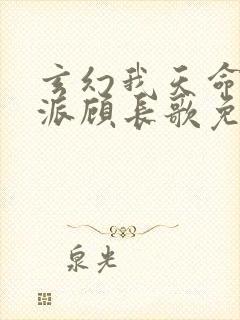 玄幻我天命
派顾长歌免
泉光